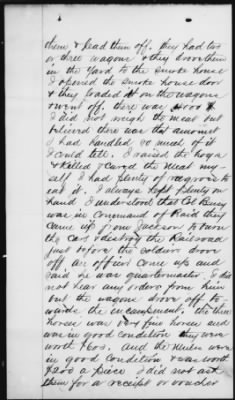 them & lead them off. they had two
or three wagons & they drove them
in the yard to the smoke house
I opened the smoke house door
& they loaded it on the wagons
& went off. there was 4000 #
I did not weigh the meat but
believed there was that amount
I had handled so much of it
I could tell. I raised the hogs
& killed & cured the meat my
self I had plenty of negroes to
eat it. I always kept plenty on
hand I understood that Col Bussy
was in command of Raid they
came up from Jackson to burn
the cars & destroy the Railroad
just before the soldiers drove
off an officer come up and
said he was quartermaster. I did
not hear any orders from him
but the wagons drove off to
wards the encampment. the three
horses was very fine horses and
was in good condition they were
worth $600. and the Mules were
in good condition & was worth
$200 a piece I did not ask
them for a receipt or voucher